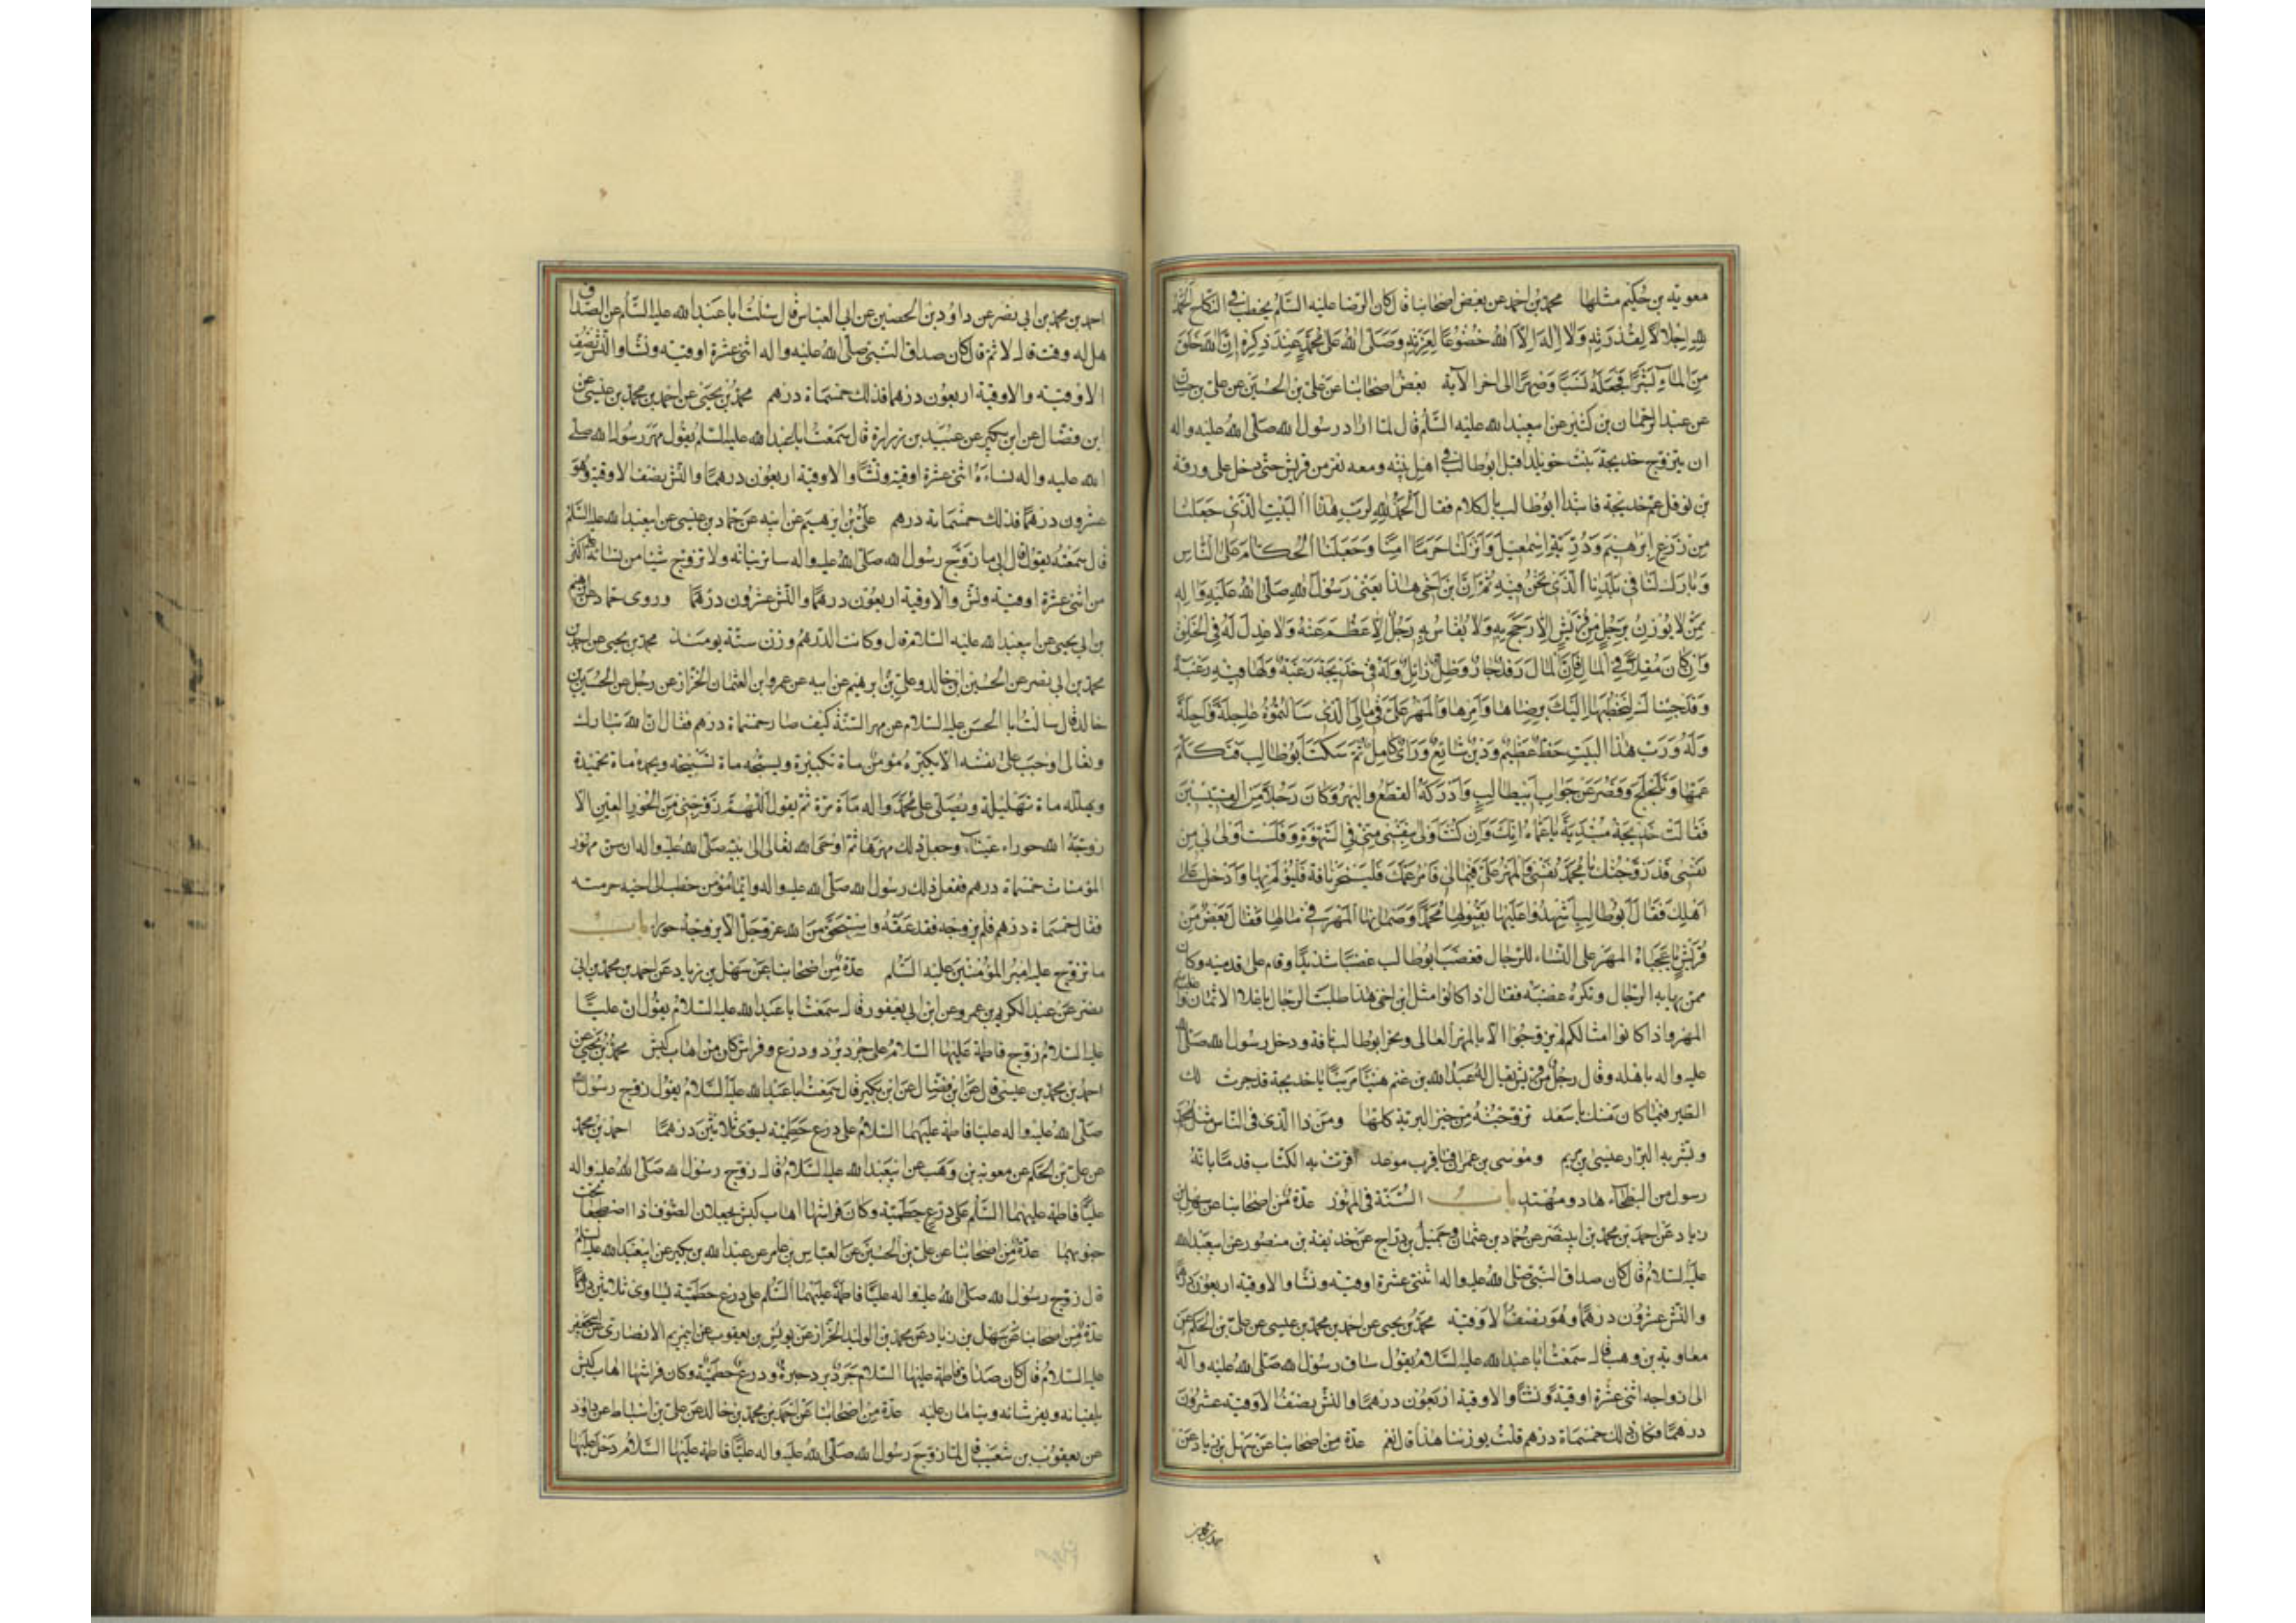 معوية بن حكيم مثلها محمد بن احمد عن بعض اصحابنا قال كان الرضا عليه السلم يخطب في النكاح الحمد
لله اجلالا لقدرته ولا اله الا الله خضوعا لعزته وصلى الله على محمد عند ذكره ان الله خلق
من الماء بشرا فجعله نسبا وصهرا الى اخر الآية بعض اصحابنا عن علي بن الحسين عن علي بن حسان
عن عبد الرحمان بن كثير عن ابيعبد الله عليه السلم قال لما اراد رسول الله صلى الله عليه واله
ان يتزوج خديجة بنت خويلد اقبل ابو طالب في اهل بيته ومعه نفر من قريش حتى دخل على ورقة
بن نوفل عم خديجة فابتدا ابو طالب بالكلام فقال الحمد لله لرب هذا البيت الذي جعلنا
من زرع ابرهيم وذرية اسمعيل وانزلنا حرما امنا وجعلنا الحكام على الناس
وبارك لنا في بلدنا الذي نحن فيه ثم ان ابن اخي هذا يعني رسول الله صلى الله عليه واله
ممن لا يوزن برجل من قريش الا رجح به ولا يقاس به رجل الا عظم عنه ولا عدل له في الخلق
وان كان مقلا في المال فان المال رفد جار وظل زايل وله في خديجة رغبة ولها فيه رغبة
وقد جئناك لنخطبها اليك برضاها وامرها والمهر علي في مالي الذي سالتموه عاجله واجله
وله ورب هذا البيت حظ عظيم ودين شائع وراي كامل ثم سكت ابو طالب فتكلم
عمها وتلجلج وقصر عن جواب ابيطالب وادركه القطع والبهر وكان رجلا من القسيسين
فقالت خديجة مبتدية يا عماه انك وان كنت اولى بنفسي مني في الشهود فلست اولى بي من
نفسي قد زوجتك يا محمد نفسي والمهر علي في مالي فامر عمك فلينحر ناقة فليولم بها وادخل على
اهلك فقال ابو طالب اشهدوا عليها بقبولها محمدا وضمانها المهر في مالها فقال بعض من
قريش يا عجباه المهر على النساء للرجال فغضب ابو طالب غضبا شديدا وقام على قدميه وكان
ممن يهابه الرجال وتكره غضبه فقال اذا كانوا مثل ابن اخي هذا طلبت الرجال باغلا الاثمان واعظم
المهر واذا كانوا امثالكم لم يزوجوا الا بالمهر الغالي ونحر ابو طالب ناقة ودخل رسول الله صلى الله
عليه واله باهله وقال رجل من قريش يقال له عبد الله بن غنم هنيئا مريئا يا خديجة قد جرت لك
الطير فيما كان منك باسعد تزوجته من خير البرية كلها ومن ذا الذي في الناس مثل محمد
وبشر به البرار عيسى بن مريم وموسى بن عمران فيا قرب موعد اقرت به الكتاب قدما بانه
رسول من البطحاء هاد ومهتد باب السنة في المهور عدة من اصحابنا عن سهل بن
زياد عن احمد بن محمد بن ابينصر عن حماد بن عثمان وجميل بن دراج عن حذيفة بن منصور عن ابيعبد الله
عليه السلام قال كان صداق النبي صلى الله عليه واله اثنتي عشرة اوقية ونشا والاوقية اربعون درهما
والنش عشرون درهما وهو نصف الاوقية محمد بن يحيى عن احمد بن محمد بن عيسى عن علي بن الحكم عن
معاوية بن وهب قال سمعت ابا عبد الله عليه السلام يقول ساق رسول الله صلى الله عليه واله
الى ازواجه اثنتي عشرة اوقية ونشا والاوقية اربعون درهما والنش نصف الاوقية عشرون
درهما فكان ذلك خمسماة درهم قلت بوزننا هذا قال نعم عدة من اصحابنا عن سهل بن زياد عن
احمد بن محمد بن ابي نصر عن داود بن الحصين عن ابي العباس قال سئلت ابا عبد الله عليه السلم عن الصداق
هل له وقت قال لا ثم قال كان صداق النبي صلى الله عليه واله اثنتي عشرة اوقية ونشا والنش نصف
الاوقية والاوقية اربعون درهما فذلك خمسماة درهم محمد بن يحيى عن احمد بن محمد بن عيسى عن
ابن فضال عن ابن بكير عن عبيد بن زرارة قال سمعت ابا عبد الله عليه السلم يقول مهر رسول الله صلى
الله عليه واله نساءه اثنتي عشرة اوقية ونشا والاوقية اربعون درهما والنش نصف الاوقية وهو
عشرون درهما فذلك خمسماة درهم علي بن ابرهيم عن ابيه عن حماد بن عيسى عن ابيعبد الله عليه السلم
قال سمعته يقول قال ابي ما زوج رسول الله صلى الله عليه واله سائر بناته ولا تزوج شيئا من نسائه على اكثر
من اثنتي عشرة اوقية ونش والاوقية اربعون درهما والنش عشرون درهما وروى حماد عن ابرهيم
بن ابي يحيى عن ابيعبد الله عليه السلام قال وكانت الدرهم وزن ستة يومئذ محمد بن يحيى عن احمد بن
محمد بن ابي نصر عن الحسين بن خالد وعلي بن ابرهيم عن ابيه عن عمرو بن العثمان الخزاز عن رجل عن الحسين بن
خالد قال سالت ابا الحسن عليه السلام عن مهر السنة كيف صار خمسماة درهم فقال ان الله تبارك
وتعالى اوجب على نفسه الا يكبره مؤمن ماة تكبيرة ويسبحه ماة تسبيحة ويحمده ماة تحميدة
ويهلله ماة تهليلة ويصلي على محمد واله ماة مرة ثم يقول اللهم زوجني من الحور العين الا
زوجه الله حوراء عيناء وجعل ذلك مهرها ثم اوحى الله تعالى الى نبيه صلى الله عليه واله ان سن مهور
المؤمنات خمسماة درهم ففعل ذلك رسول الله صلى الله عليه واله وايما مؤمن خطب الى اخيه حرمته
فقال خمسماة درهم فلم يزوجه فقد عقه واستحق من الله عز وجل الا يزوجه حوراء باب
ما تزوج عليه امير المؤمنين عليه السلم عدة من اصحابنا عن سهل بن زياد عن احمد بن محمد بن ابي
نصر عن عبد الكريم بن عمرو عن ابن ابي يعفور قال سمعت ابا عبد الله عليه السلام يقول ان عليا
عليه السلام زوج فاطمة عليها السلام على جرد برد ودرع وفراش كان من اهاب كبش محمد بن يحيى عن
احمد بن محمد بن عيسى قال عن ابن فضال عن ابن بكير قال سمعت ابا عبد الله عليه السلام يقول زوج رسول الله
صلى الله عليه واله عليا فاطمة عليهما السلام على درع حطمية يسوى ثلاثين درهما احمد بن محمد
عن علي بن الحكم عن معوية بن وهب عن ابيعبد الله عليه السلام قال زوج رسول الله صلى الله عليه واله
عليا فاطمة عليهما السلم على درع حطمية وكان فراشها اهاب كبش يجعلان الصوف اذا اضطجعا تحت
جنوبهما عدة من اصحابنا عن علي بن الحسين عن العباس بن عامر عن عبد الله بن بكير عن ابيعبد الله عليه السلم
قال زوج رسول الله صلى الله عليه واله عليا فاطمة عليهما السلم على درع حطمية يساوى ثلاثين درهما
عدة من اصحابنا عن سهل بن زياد عن محمد بن الوليد الخزاز عن يونس بن يعقوب عن ابيمريم الانصاري عن ابيجعفر
عليه السلام قال كان صداق فاطمة عليها السلام جرد برد حبرة ودرع حطمية وكان فراشها اهاب كبش
يلقيانه ويفرشانه وينامان عليه عدة من اصحابنا عن احمد بن محمد بن خالد عن علي بن اسباط عن داود
عن يعقوب بن شعيب قال لما زوج رسول الله صلى الله عليه واله عليا فاطمة عليها السلام دخل عليها